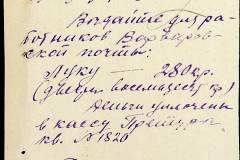 Выдайте для ра-
ботников Варваров-
ской почты:
Луку — 280 кр.
(двести восемьдесят кр)
Деньги уплочены
в кассу Претури.
кв. № 1820